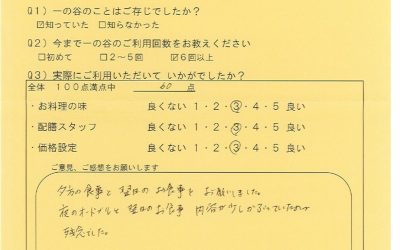 Q1）一の谷のことはご存じでしたか？
☑知っていた　□知らなかった
Q2）今まで一の谷のご利用回数をお教えください
□初めて　□2～5回　☑6回以上
Q3）実際にご利用いただいて いかがでしたか？
全体　100点満点中　60　点
・お料理の味　良くない 1・2・③・4・5 良い
・配膳スタッフ　良くない 1・2・③・4・5 良い
・価格設定　良くない 1・2・③・4・5 良い
ご意見、ご感想をお願いします
夕方の食事と翌日のお食事をお願いしました。
夜のオードブルと翌日のお食事 内容が少しかぶっていたので
残念でした。